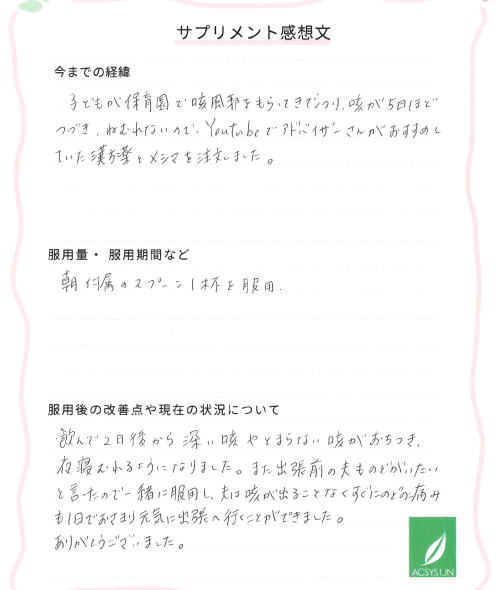 サプリメント感想文
今までの経緯
子どもが保育園で咳風邪をもらってきてうつり、咳が5日ほど
つづき、ねむれないので、Youtubeでアドバイザーさんがおすすめし
ていた漢方薬とメシマを注文しました。
服用量・ 服用期間など
朝 付属のスプーン1杯を服用.
服用後の改善点や現在の状況について
飲んで2日後から深い咳やとまらない咳がおちつき、
夜寝むれるようになりました。また出張前の夫ものどがいたい
と言ったので一緒に服用し、夫は咳が出ることなくすぐにのどの痛み
も1日でおさまり元気に出張へ行くことができました。
ありがとうございました。
ACSYSUN